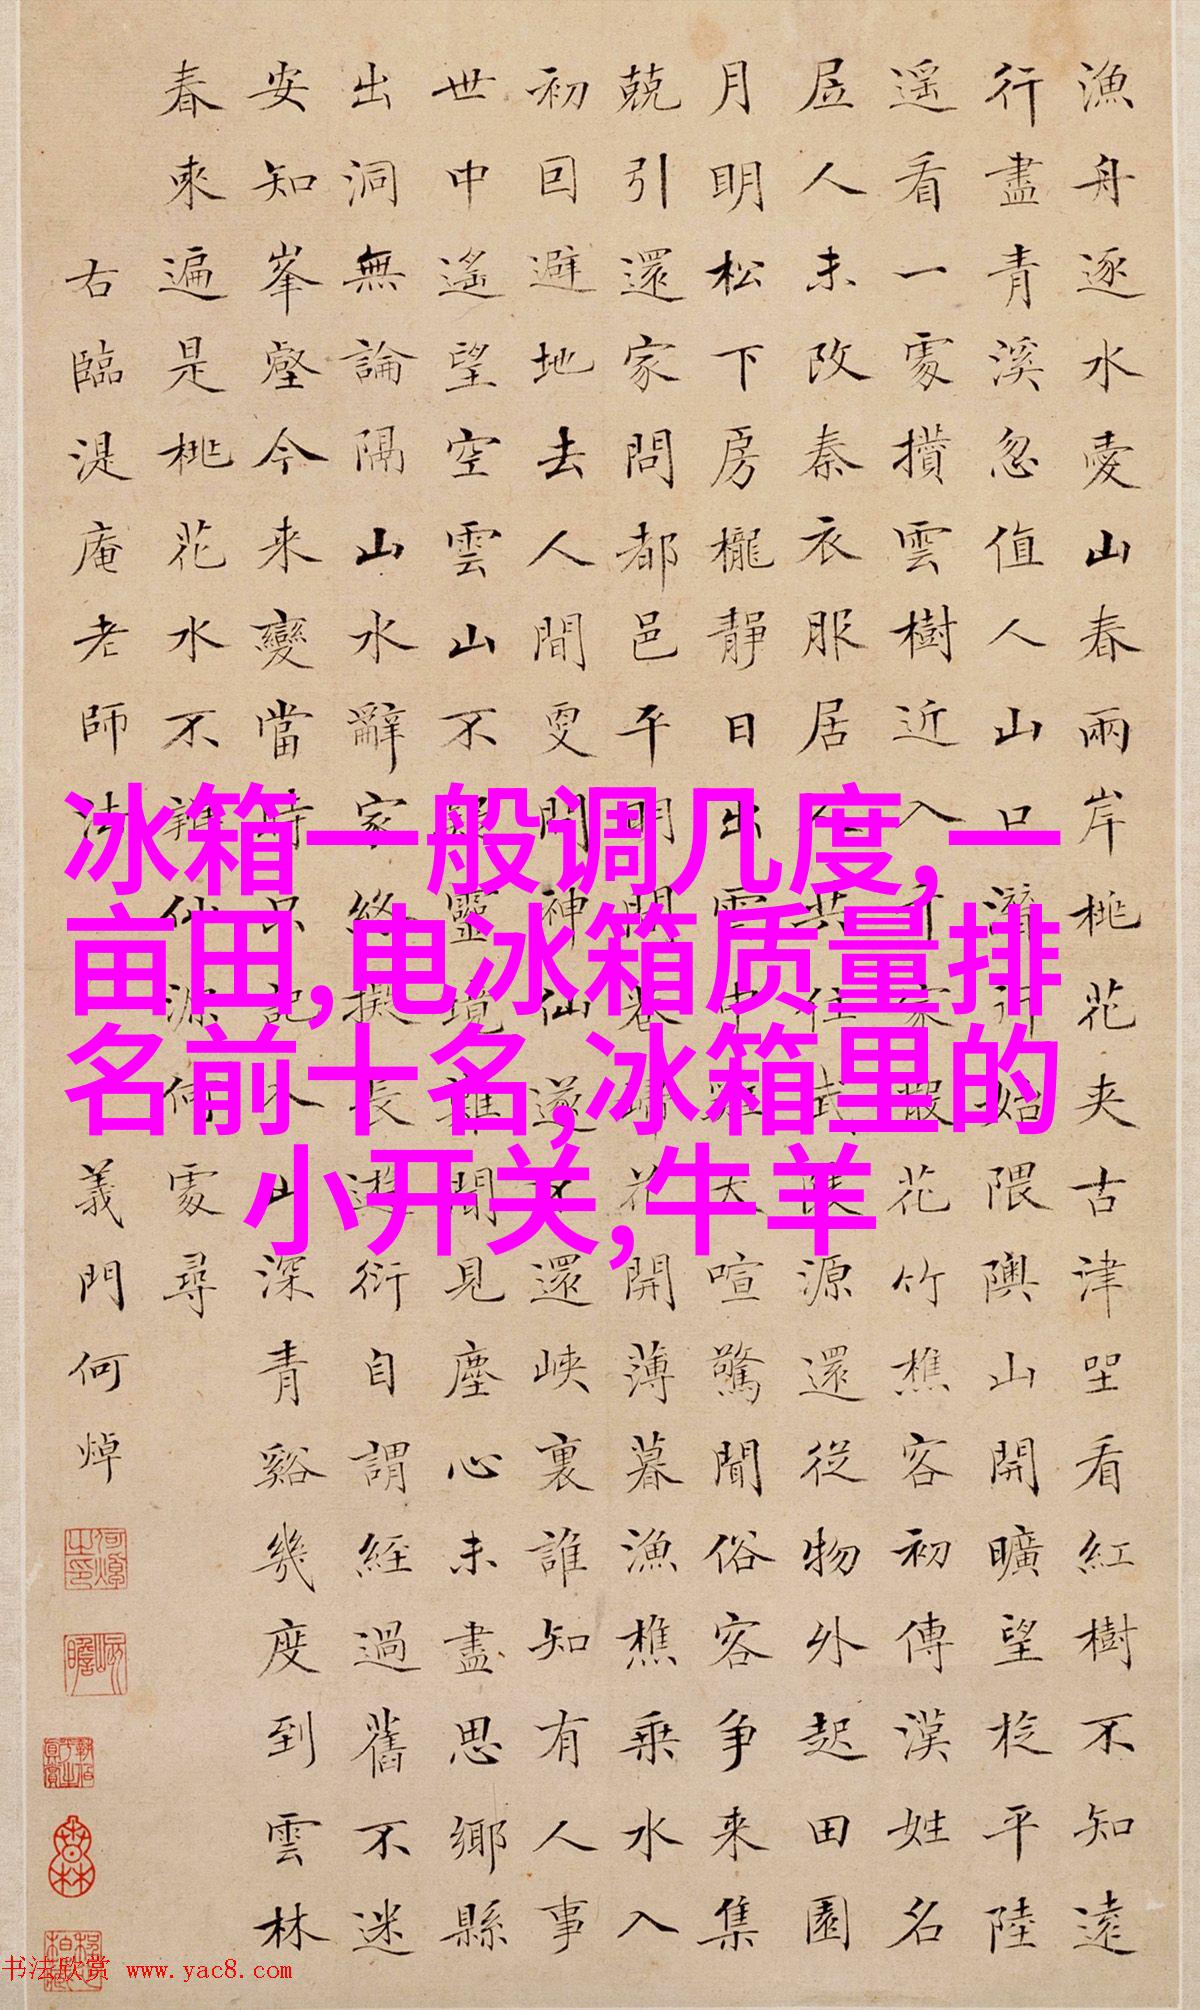 漁舟逐水愛山春兩岸桃花夾古津坐看紅樹不知遠
行盡青溪忽值人山口潛行始隈隩山開曠望旋平陸
遥看一處攢雲樹近入千家散花竹樵客初傳漢姓名
居人未改秦衣服居人共住武陵源還從物外起田園
月明松下房櫳靜日出雲中雞犬喧驚聞俗客争来集
兢引還家問都邑平明閭巷掃花開薄暮漁樵乘水入
初回避地去人間更問神仙遂不還峽裏誰知有人事
世中遙望空雲山不疑靈境難聞見塵心未盡思鄉縣
出洞無論隔山水辭家終擬長遊衍自謂經過舊不迷
安知峯壑今来變當時只記入山深青谿幾度到雲林
春來遍是桃花水不辨仙源何處尋
右臨湜庵老師法
義門何焯
冰箱一般调几度,一
亩田,电冰箱质量排
名前十名,冰箱里的
小开关,牛羊
书法欣赏 www.yac8.com